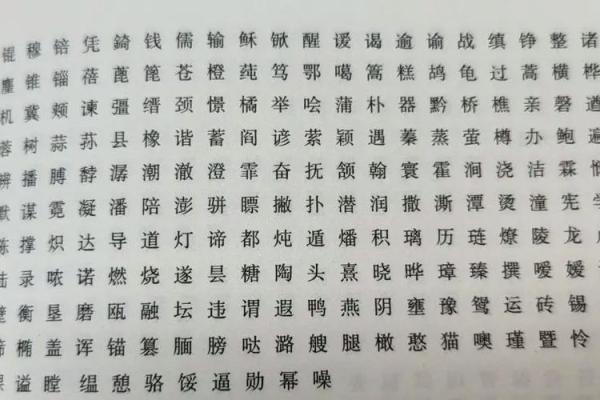 锟穆锫凭錡钱儒输稣锨醒谖谒逾谕战缜铮整诸
麈锥锱蓓蓖篦苍橙莼笃鄂噶篙糕鸪龟过蒿横桦
机冀颊谏彊缙颈憬橘举哙蒲朴器黔桥樵亲磬遒
蓉树蒜荪县橡谐蓄阎谚萦颖遇蓁蒸萤樽办鲍遍
播膊馞潺潮澈澄霏奋抚颔翰寰霍涧浇洁霖
默谋霓凝潘陪澎骈瞟撇扑潜润撒澌潭烫潼宪学
撑炽达导道灯谛都炖遁燔积璃历琏燎陵龙
陆录哝诺燃烧遂昙糖陶头熹晓晔璋臻撰嗳媛
衡垦磨瓯融坛违谓遐鸭燕阴壅豫鸳运砖锡
椭盖诨锚篡腼膀哒潞艘腿橄憨猫噢瑾暨怜
谥瞠缊憩骆馁逼勋幂噪